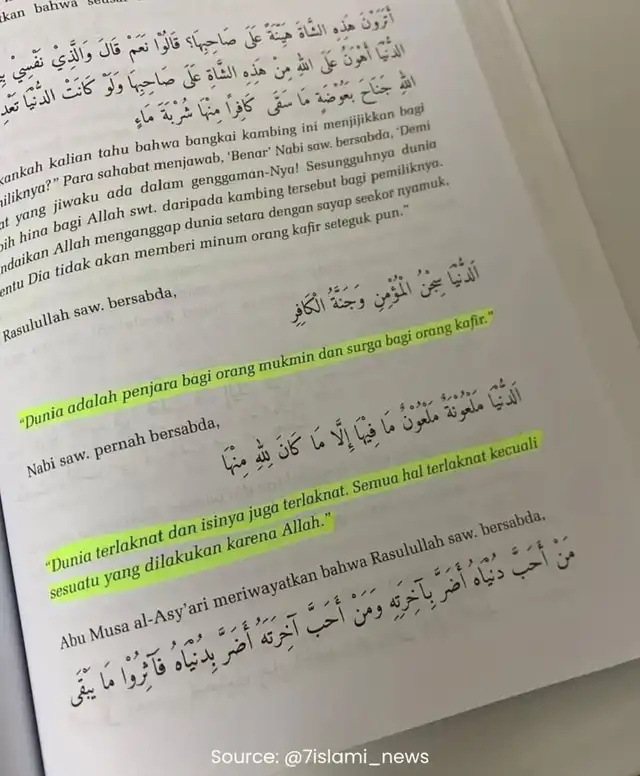 kan bahwa
أَتَرَوْنَ هَذِهِ الشَّاةَ هَيِّنَةً عَلَى صَاحِبِهَا؟ قَالُوْا نَعَمْ قَالَ وَالَّذِيْ نَفْسِيْ
الدُّنْيَا أَهْوَنُ عَلَى اللهِ مِنْ هَذِهِ الشَّاةِ عَلَى صَاحِبِهَا وَلَوْ كَانَتْ الدُّنْيَا
اللهِ جَنَاحَ بَعُوْضَةٍ مَا سَقَى كَافِرًا مِنْهَا شُرْبَةَ مَاءٍ
kankah kalian tahu bahwa bangkai kambing ini menjijikkan bagi
niliknya?" Para sahabat menjawab, 'Benar' Nabi saw. bersabda, 'Demi
at yang jiwaku ada dalam genggaman-Nya! Sesungguhnya dunia
bih hina bagi Allah swt. daripada kambing tersebut bagi pemiliknya.
ndaikan Allah menganggap dunia setara dengan sayap seekor nyamuk,
entu Dia tidak akan memberi minum orang kafir seteguk pun."
Rasulullah saw. bersabda,
اَلدُّنْيَا سِجْنُ الْمُؤْمِنِ وَجَنَّةُ الْكَافِرِ
"Dunia adalah penjara bagi orang mukmin dan surga bagi orang kafir."
Nabi saw. pernah bersabda,
اَلدُّنْيَا مَلْعُوْنَةٌ مَلْعُوْنٌ مَا فِيْهَا إِلَّا مَا كَانَ لِلهِ مِنْهَا
"Dunia terlaknat dan isinya juga terlaknat. Semua hal terlaknat kecuali
sesuatu yang dilakukan karena Allah."
Abu Musa al-Asy'ari meriwayatkan bahwa Rasulullah saw. bersabda,
مَنْ أَحَبَّ دُنْيَاهُ أَضَرَّ بِآخِرَتِهِ وَمَنْ أَحَبَّ آخِرَتَهُ أَضَرَّ بِدُنْيَاهُ فَآثِرُوْا مَا يَبْقَى
Source: @7islami_news